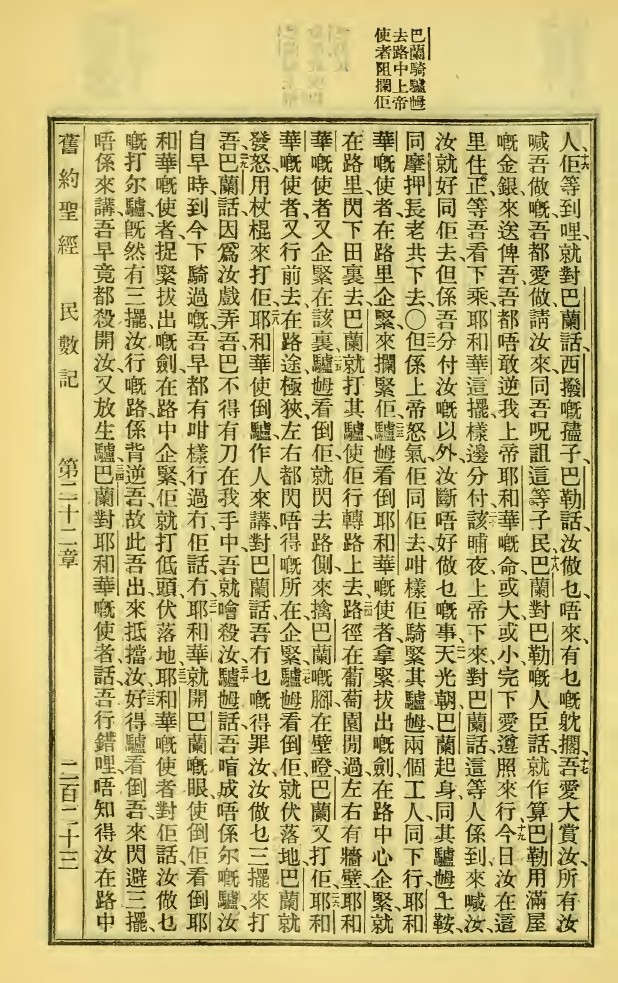 巴蘭騎驢姆
去路中上帝
使者阻攔佢
人、佢等到哩、就對巴蘭話、西撥嘅孻子、巴勒話、汝做乜唔來、有乜嘅躭擱、十七吾愛大賞汝、所有汝
喊吾做嘅、吾都愛做、請汝來同吾呪詛這等子民、十八巴蘭對巴勒嘅人臣話、就作算巴勒用滿屋
嘅金銀來送俾吾、吾都唔敢逆我上帝耶和華嘅命、或大或小、完下愛遵照來行、十九今日汝在這
里住、正等吾看下乘、耶和華這擺樣邊分付、二十該晡夜上帝下來、對巴蘭話、這等人係到來喊汝、
汝就好同佢去、但係吾分付汝嘅以外、汝斷唔好做乜嘅事、二一天光朝、巴蘭起身、同其驢姆上鞍、
同摩押長老共下去、〇二二但係上帝怒氣佢同佢去、咁樣佢騎緊其驢姆、兩個工人同下行、耶和
華嘅使者在路里企緊、來攔緊佢、二三驢姆看倒耶和華嘅使者、拿緊拔出嘅劍、在路中心企緊、就
在路里閃下田裏去、巴蘭就打其驢、使佢行轉路上去、二四路徑在葡萄園閒過、左右有牆壁、耶和
華嘅使者又企緊在該裏、二五驢姆看倒佢、就閃去路側、來擒巴蘭嘅腳在壁磴、巴蘭又打佢、二六耶和
華嘅使者又行前去、在路途極狹、左右都閃唔得嘅所在企緊、二七驢姆看倒佢、就伏落地、巴蘭就
發怒、用杖棍來打佢、二八耶和華使倒驢作人來講、對巴蘭話、吾冇乜嘅得罪汝、汝做乜三擺來打
吾、二九巴蘭話、因爲汝戲弄吾、吾巴不得有刀在我手中、吾就噲殺汝、三十驢姆話、吾唔成唔係尔嘅驢、汝
自早時到今下騎過嘅、吾早都有咁樣行過冇、佢話冇、三一耶和華就開巴蘭嘅眼、使倒佢看倒耶
和華嘅使者、捉緊拔出嘅劍、在路中企緊、佢就打低頭、伏落地、三二耶和華嘅使者對佢話、汝做乜
嘅打尔驢、旣然有三擺、汝行嘅路係背逆吾、故此吾出來抵擋汝、三三好得驢看倒吾、來閃避三擺、
唔係來講、吾早竟都殺開汝、又放生驢、三四巴蘭對耶和華嘅使者話、吾行錯哩、唔知得汝在路中
舊約聖經 民數記 第二十二章 二百二十三